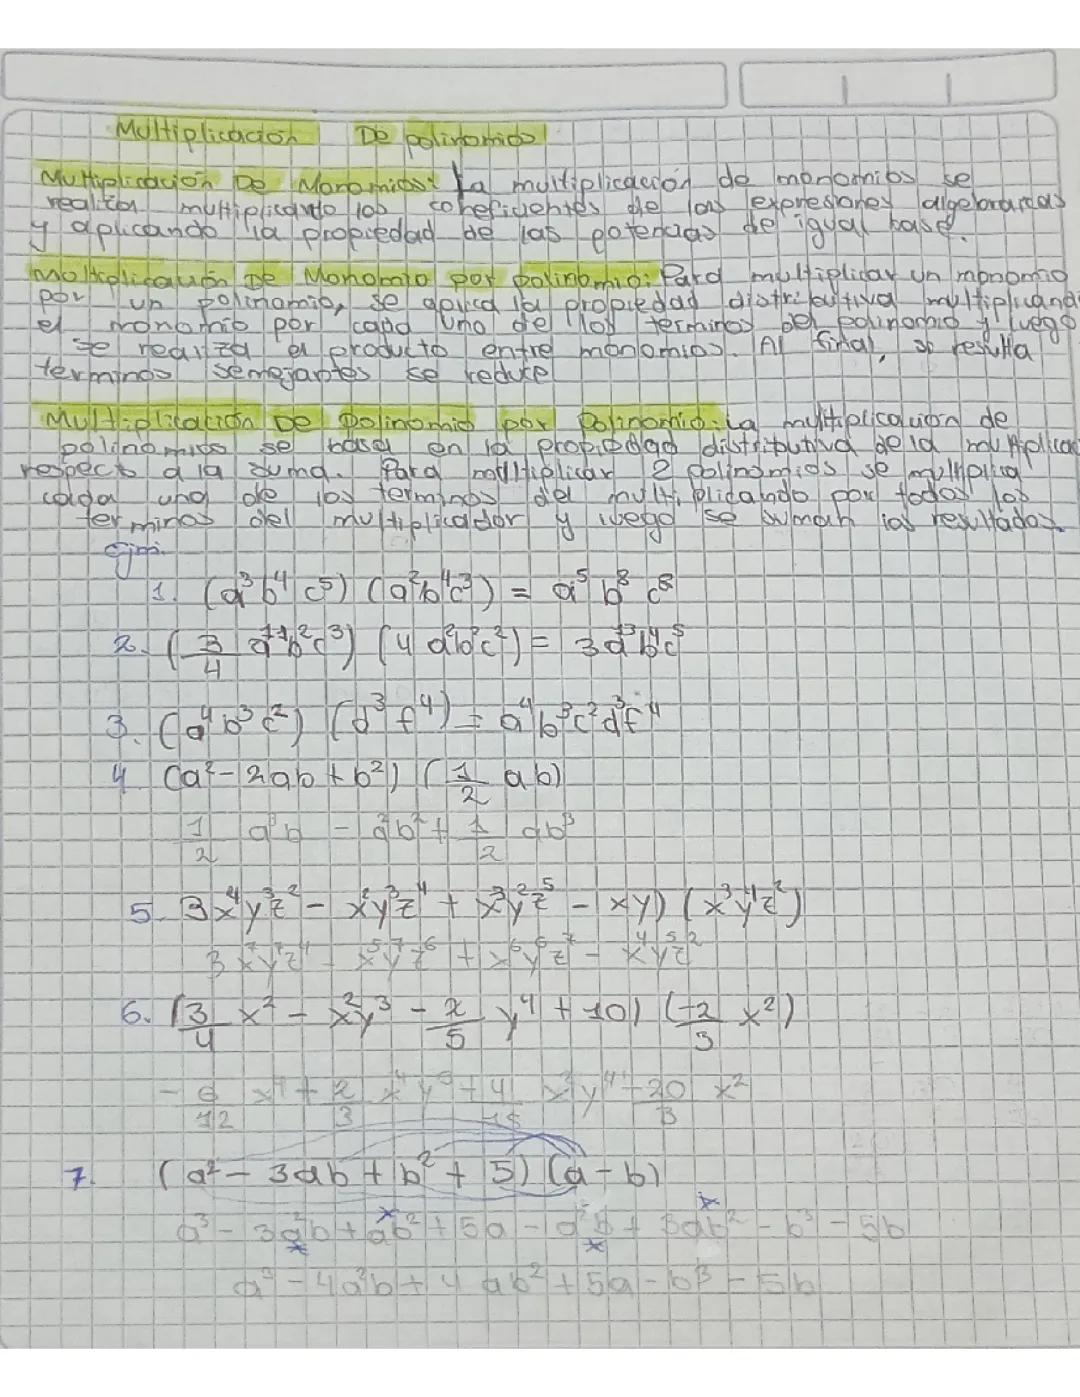 Multiplicación De polinomios
Multiplicación De Monomios: La multiplicación de monomios se
realiza multiplicando los coheficientes de las expresiones algebraicas
y aplicando la propiedad de las potencias de igual base.
Multiplicación De Monomio por polinomio: Para multiplicar un monomio
por un polinomio, se aplica la propiedad distributiva multiplicando
el monomio por cada uno de los terminos del polinomio y luego
se realiza el producto entre monomios. Al final, si resulta
terminos semejantes se reduce
Multiplicación De Polinomio por Polinomio: La multiplicación de
polinomios se basa en la propiedad distributiva de la multiplica
respecto a la suma. Para multiplicar 2 polinomios se multiplica
cada uno de los terminos del multiplicando por todos los
terminos del multiplicador y luego se suman los resultados.
Ejm.
1. (a³b⁴c⁵) (a²b⁴c³) = a⁵ b⁸ c⁸
2. (3/4 a¹¹b²c³) (4 a²b²c²) = 3a¹³b⁴c⁵
3. (a⁴b³c²) (d³ f⁴) = a⁴b³c²d³f⁴
4 (a² - 2ab + b²) (1/2 ab)
1/2 a³b - a²b² + 1/2 ab³
5. 3x⁴y³z² - x²y³z⁴ + x³y²z⁵ - xy) (x³y⁴z²)
3x⁷y⁷z⁴ - x⁵y⁷z⁶ + x⁶y⁶z⁷ - x⁴y⁵z²
6. (3/4 x² - x²y³ - 2/5 y⁴ + 10) (-2/3 x²)
- 6/12 x⁴ + 2/3 x⁴y³ + 4/15 x²y⁴ - 20/3 x²
7. (a² - 3ab + b² + 5) (a - b)
a³ - 3a²b + ab² + 5a - a²b + 3ab² - b³ - 5b
a³ - 4a²b + 4ab² + 5a - b³ - 5b